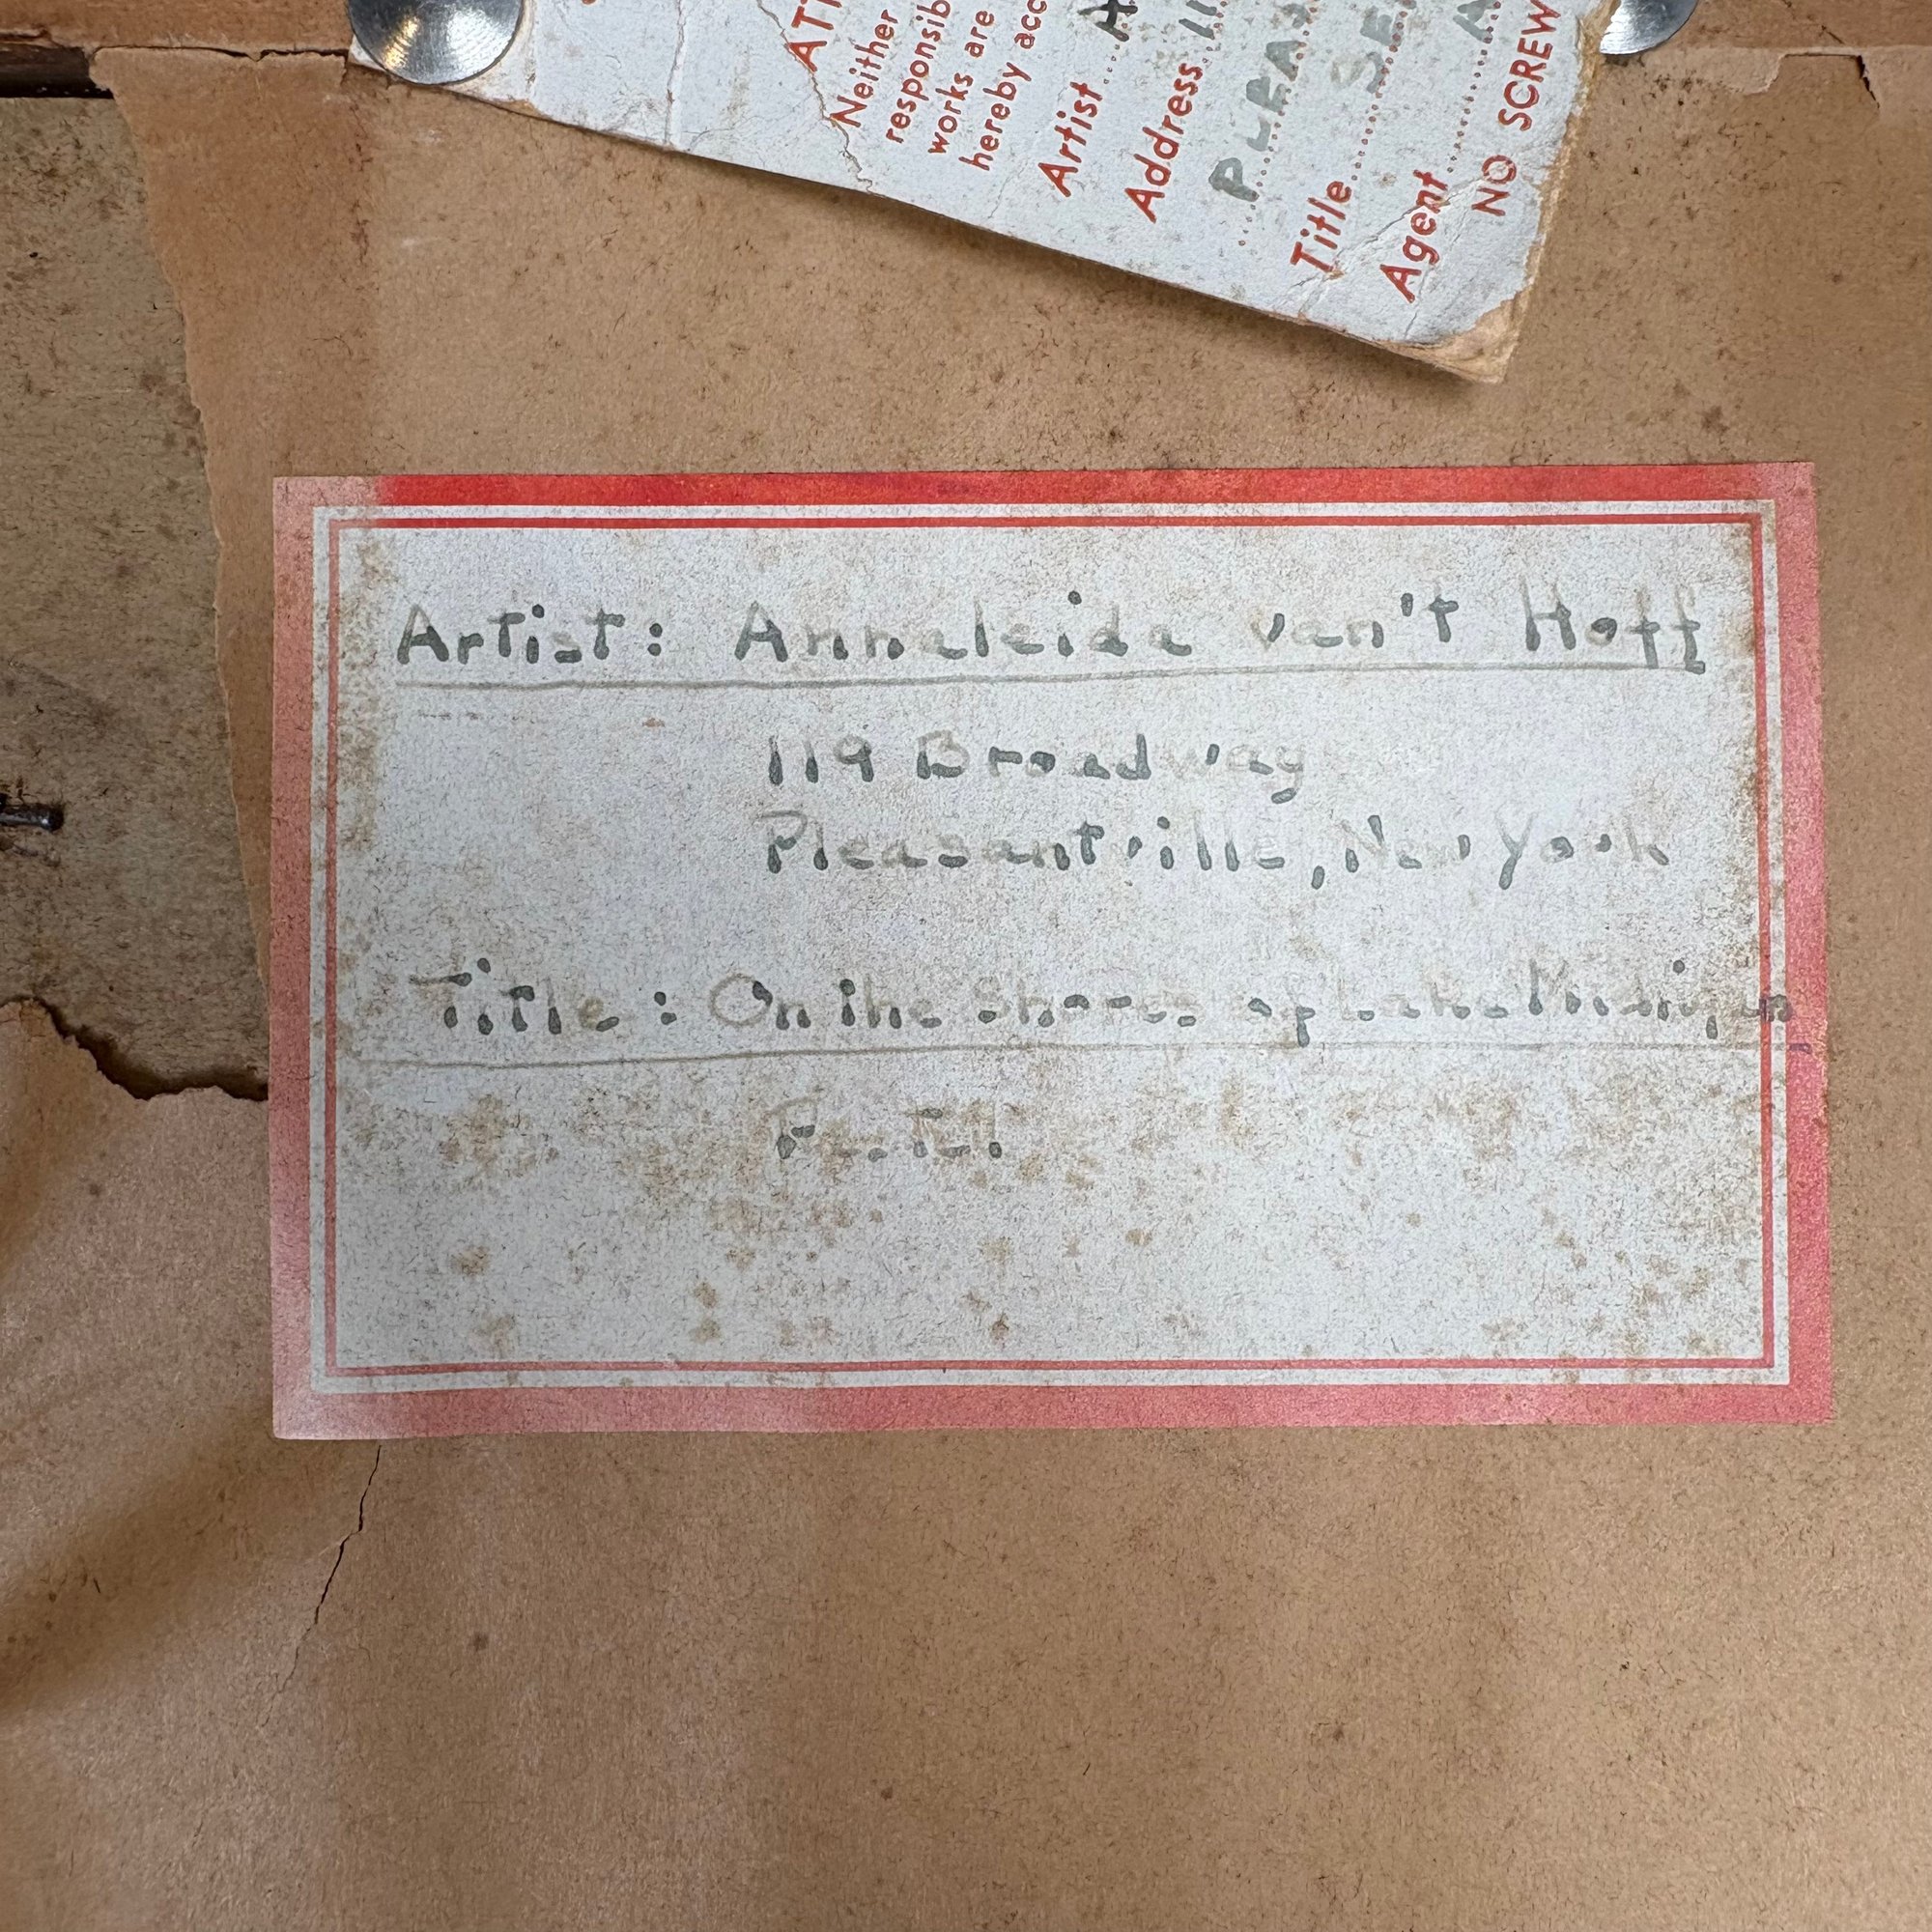 ATT
Neither
responsib
works are
hereby acc
Artist A
Address 11
PLEAS
Title SE
Agent A
NO SCREW
Artist: Annaleida van't Hoff
119 Broadway
Pleasantville, New York
Title: On the Shores of Lake Michigan